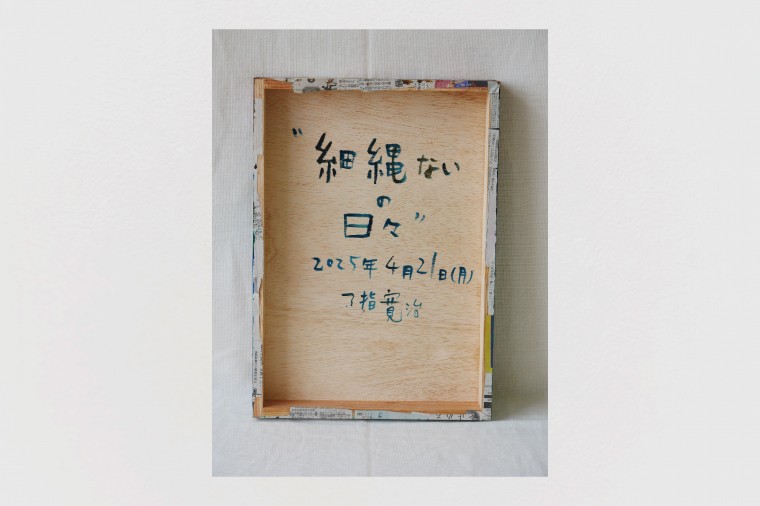 “細縄ない
の
日々”
2025年4月21日(月)
弓指寛治